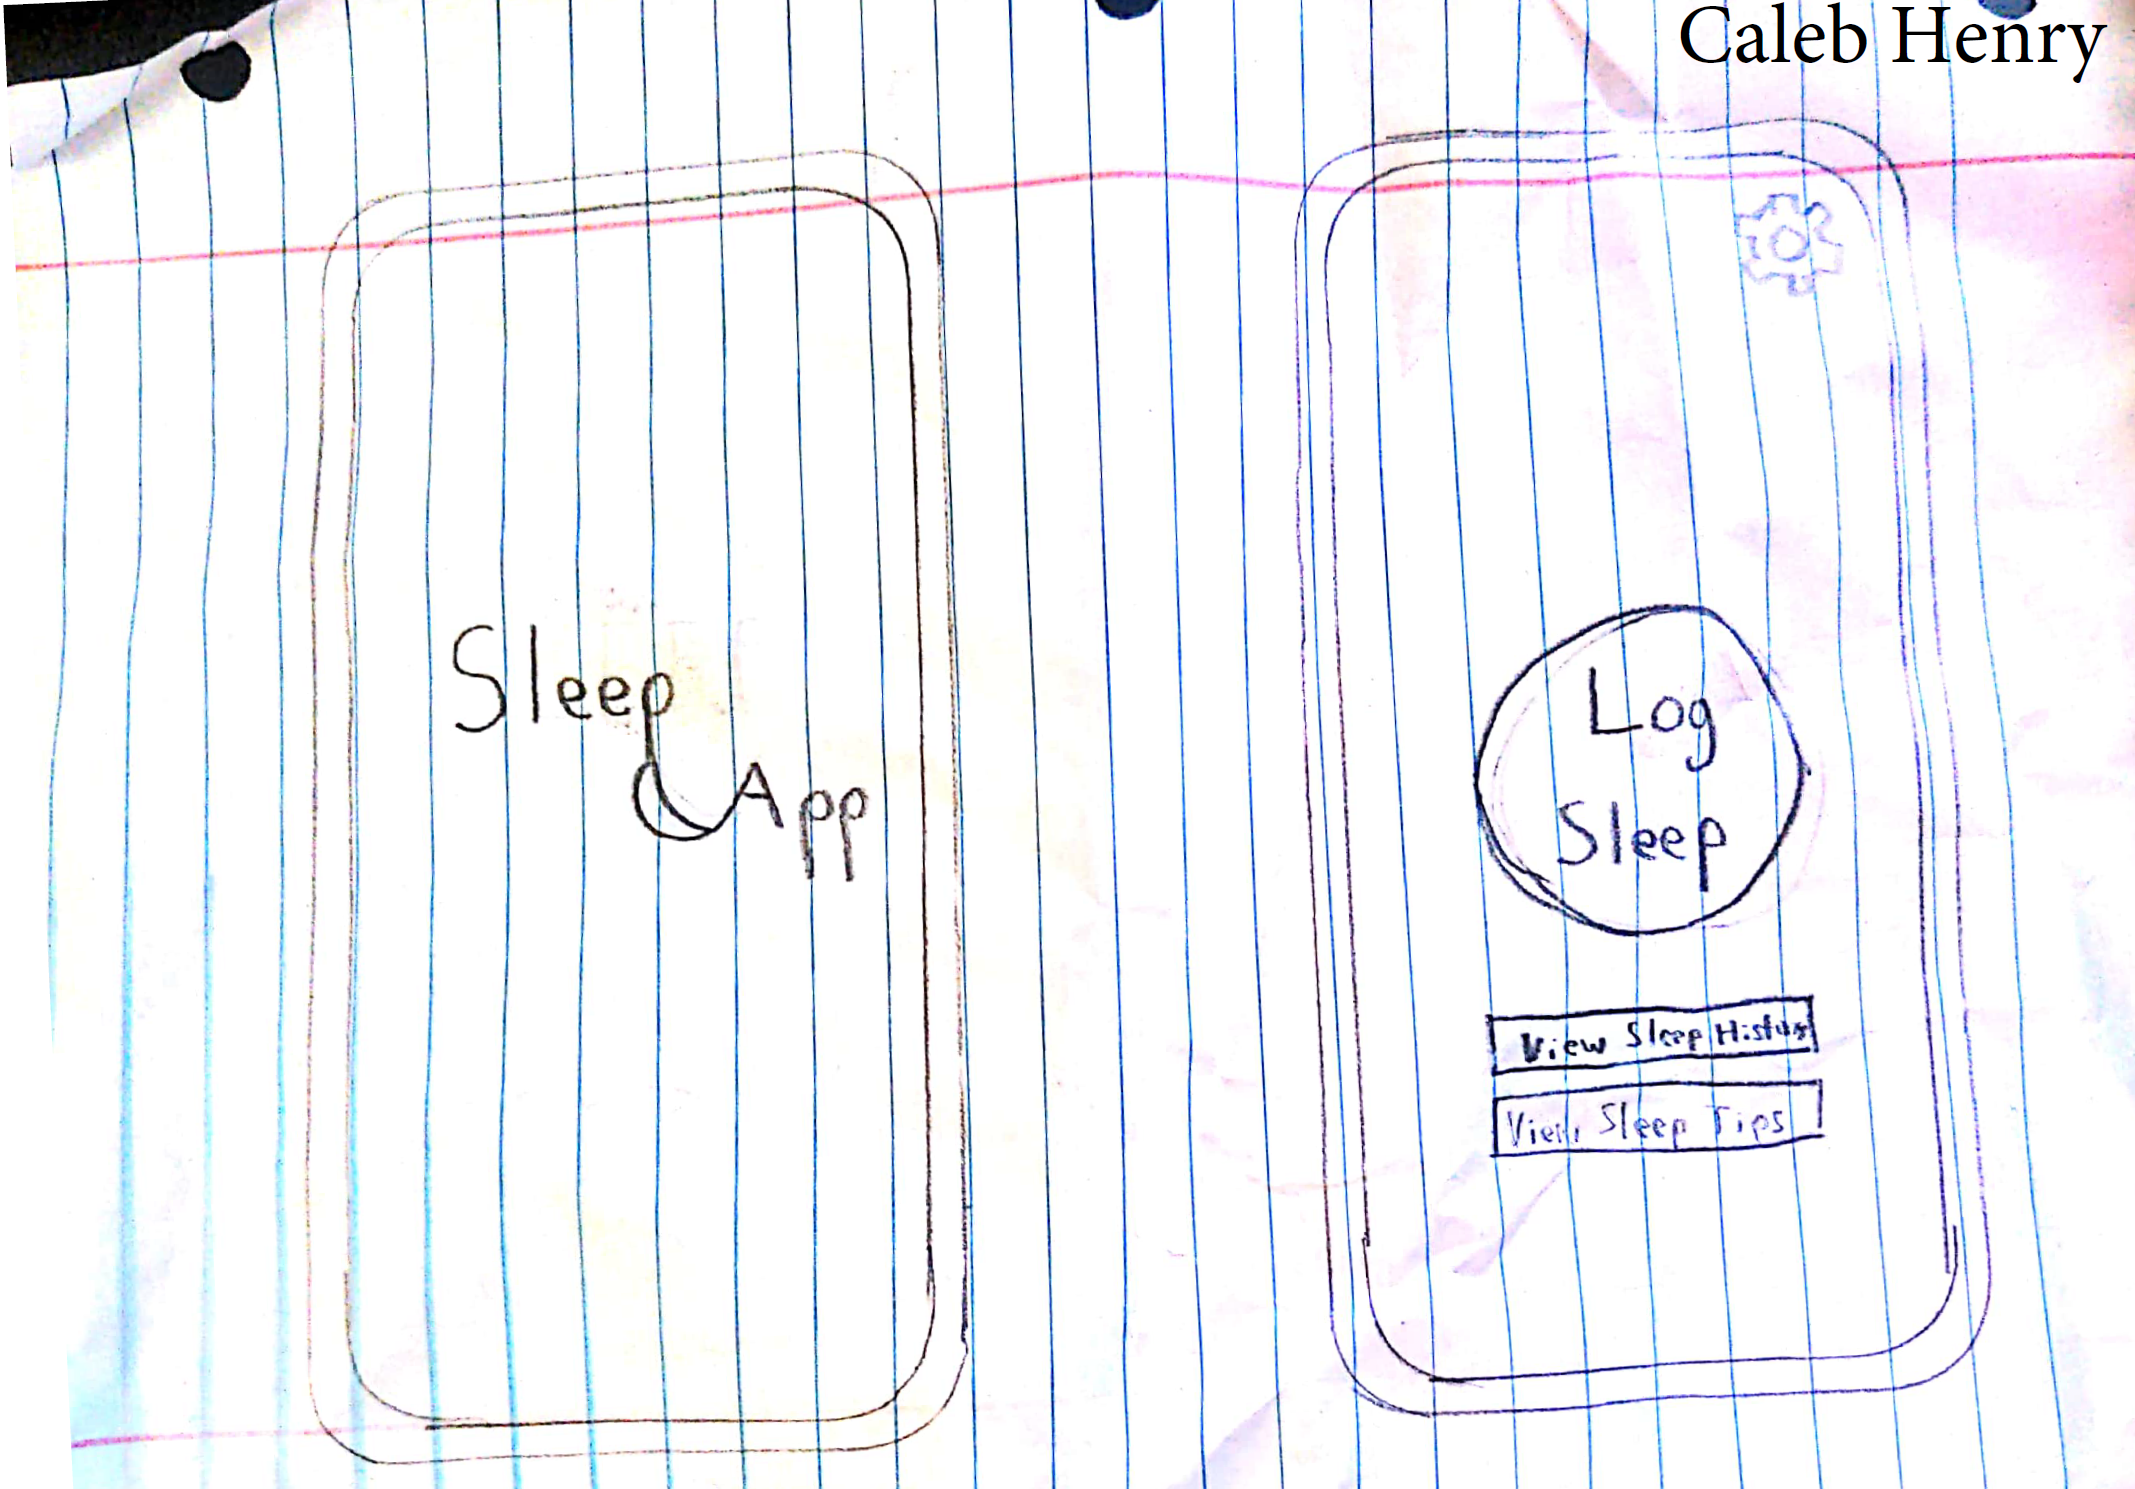 Caleb Henry
Sleep
App
Log
Sleep
View Sleep History
View Sleep Tips